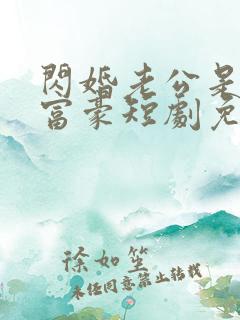 閃婚老公是
富豪短劇免
徐如笙
未经同意禁止转载